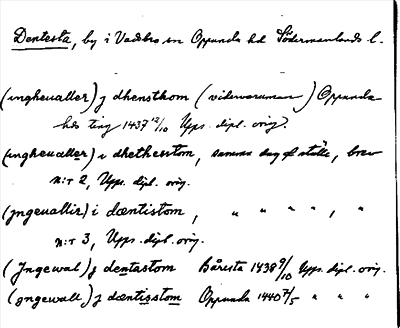 Dentesta, by i Vadsbro sn Oppunda hd Södermanlands l.
(ingheualler) j dhensthom (vidervarumen) Oppunda
hds ting 1437 12/10 Upps. dipl. orig.
(ingheualler) i dhethesstom, samma dag o ställe, brev
n:r 2, Upps. dipl. orig.
(jngeuallir) i dæntistom, " " " " , "
n:r 3, Upps. dipl. orig.
(Jngewal) j dentastom Bårsta 1438 9/10 Upps. dipl. orig.
(jngewall) j dæntisstom Oppunda 1440 7/5 " " "